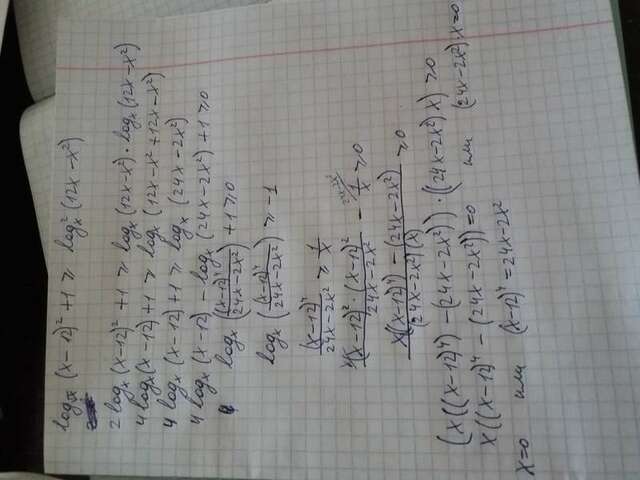 log_√x (x-12)² + 1 ≥ log²_x (12x-x²)
2 log_x (x-12)² + 1 ≥ log_x (12x-x²) · log_x (12x-x²)
4 log_x (x-12) + 1 ≥ log_x (12x-x² + 12x-x²)
4 log_x (x-12) + 1 ≥ log_x (24x-2x²)
4 log_x (x-12) - log_x (24x-2x²) + 1 ≥ 0
log_x ((x-12)⁴/(24x-2x²)) + 1 ≥ 0
log_x ((x-12)⁴/(24x-2x²)) ≥ -1
(x-12)⁴/(24x-2x²) ≥ 1/x
x/(x-12)²·(x-12)²/(24x-2x²) - 24x-2x²/1/x ≥ 0
x((x-12)⁴) - (24x-2x²)/((24x-2x²)(x)) ≥ 0
(x((x-12)⁴) - (24x-2x²)) · ((24x-2x²)x) ≥ 0
x((x-12)⁴ - (24x-2x²)) = 0 или (24x-2x²)·x = 0
x=0 или (x-12)⁴ = 24x-2x²